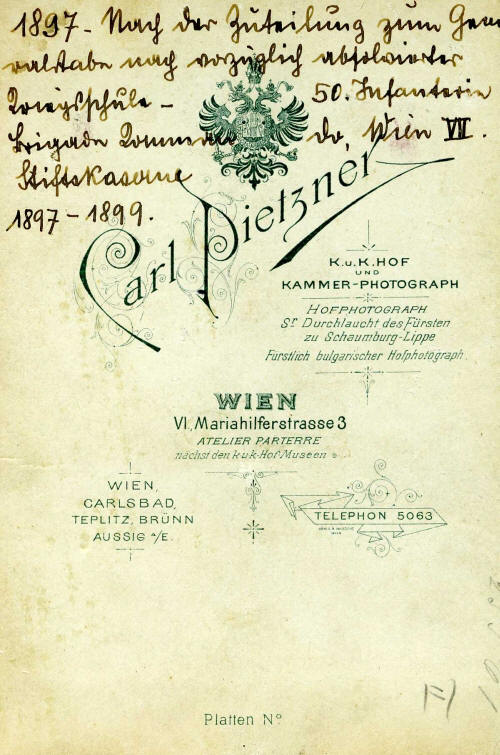 1897 - Nach der Zuteilung zum Gene
ralstabe nach vorzüglich absolvierter
Kriegsschule - 50. Infanterie
Brigade Komman do, Wien VII.
Stiftskaserne
1897 - 1899.
Carl Pietzner
K.u.K. HOF
UND
KAMMER-PHOTOGRAPH
HOFPHOTOGRAPH
Sr Durchlaucht des Fürsten
zu Schaumburg-Lippe
Fürstlich bulgarischer Hofphotograph.
WIEN
VI., Mariahilferstrasse 3
ATELIER PARTERRE
nächst den k.u.k. Hof Museen
WIEN,
CARLSBAD,
TEPLITZ, BRÜNN
AUSSIG a/E.
TELEPHON 5063
Platten No